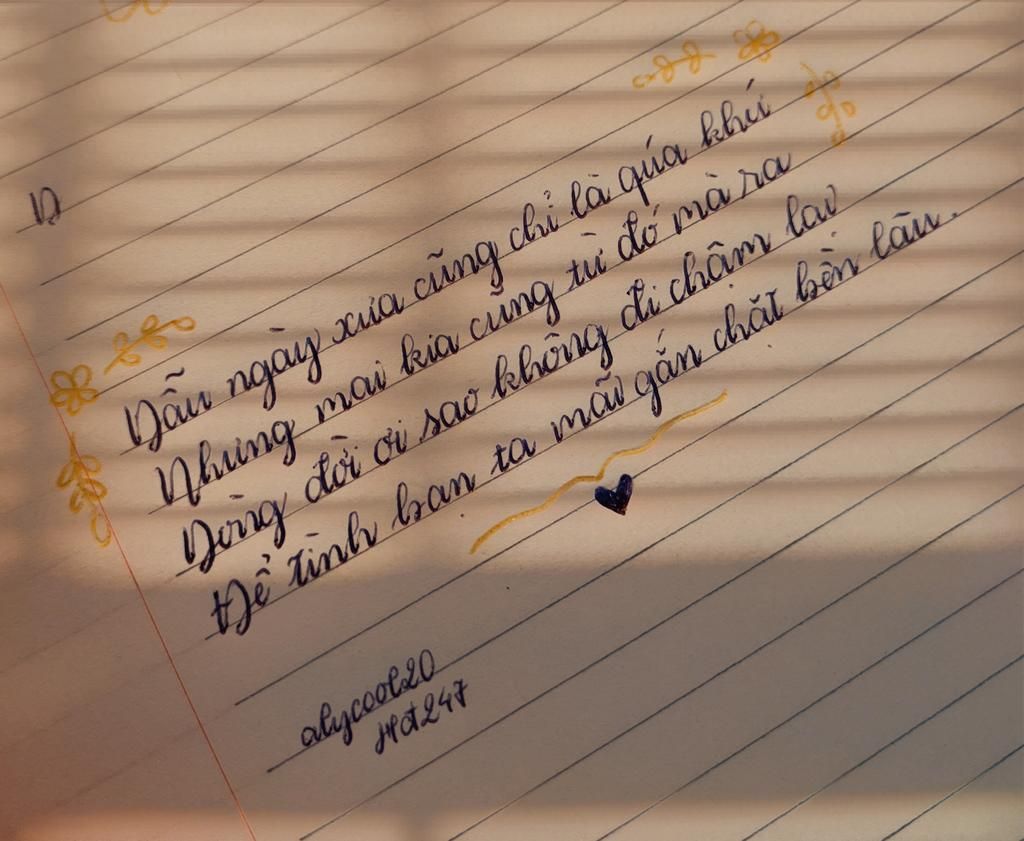 D
Dẫu ngày xưa cũng chỉ là qúa khứ
Nhưng mai kia cũng từ đó mà ra
Dòng đời ơi sao không đi chậm lại
Để tình bạn ta mãi gắn chặt bền lâu.
alycool20
HĐ247